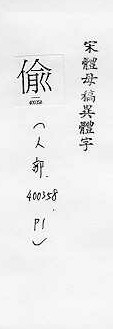 宋體母稿異體字
偷
400358
(人部.
400358
P1)